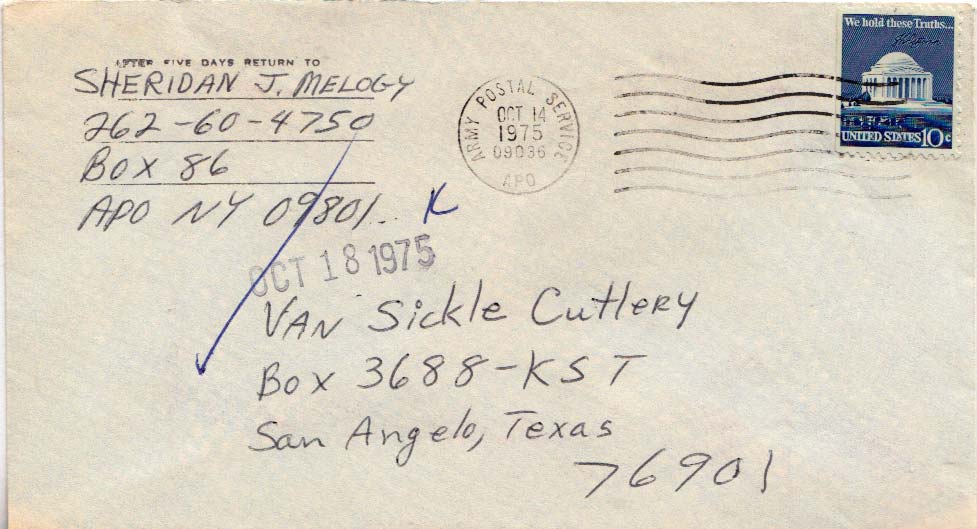 AFTER FIVE DAYS RETURN TO
SHERIDAN J. MELOGY
262-60-4750
BOX 86
APO NY 09801..
K
ARMY POSTAL SERVICE
OCT 14
1975
09036
APO
We hold these Truths...
UNITED STATES 10c
OCT 18 1975
VAN Sickle CutleRy
Box 3688-KST
San Angelo, Texas
76901